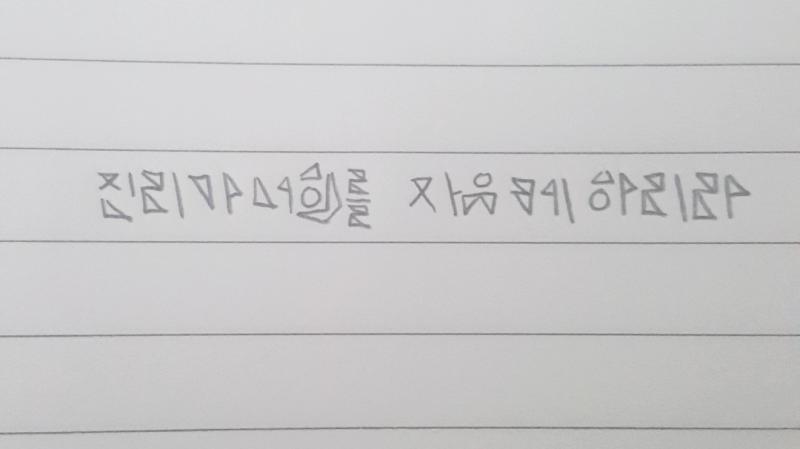 진리가 너희를 자유케 하리라